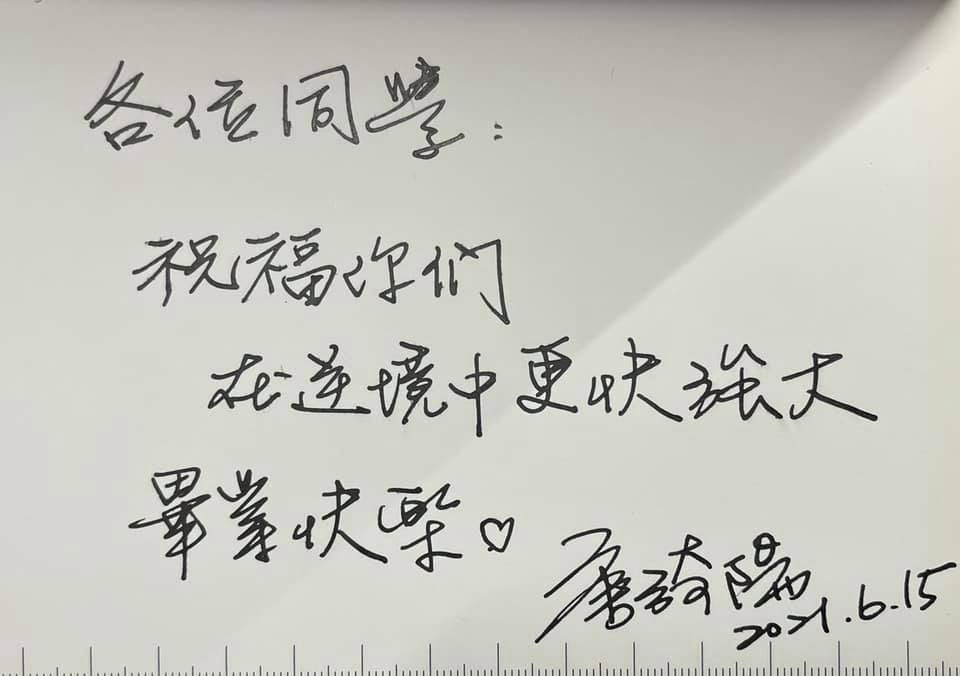 各位同學：
祝福你們
在逆境中更快強大
畢業快樂♡
唐琦陽
2021.6.15